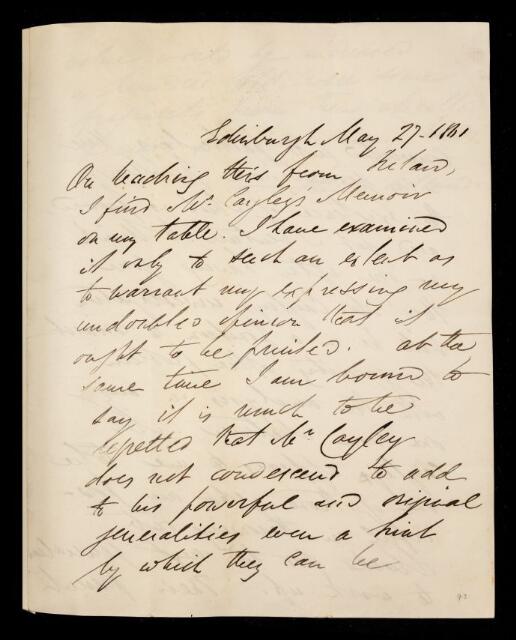 Edinburgh May 27. 1861
On reaching this from Ireland,
I find Mr Cayley's Memoir
on my table. I have examined
it only to such an extent as
to warrant my expressing my
undoubted opinion that it
ought to be printed. At the
same time I am bound to
say it is much to be
regretted that Mr Cayley
does not condescend to add
to his powerful and original
generalities even a hint
by which they can be